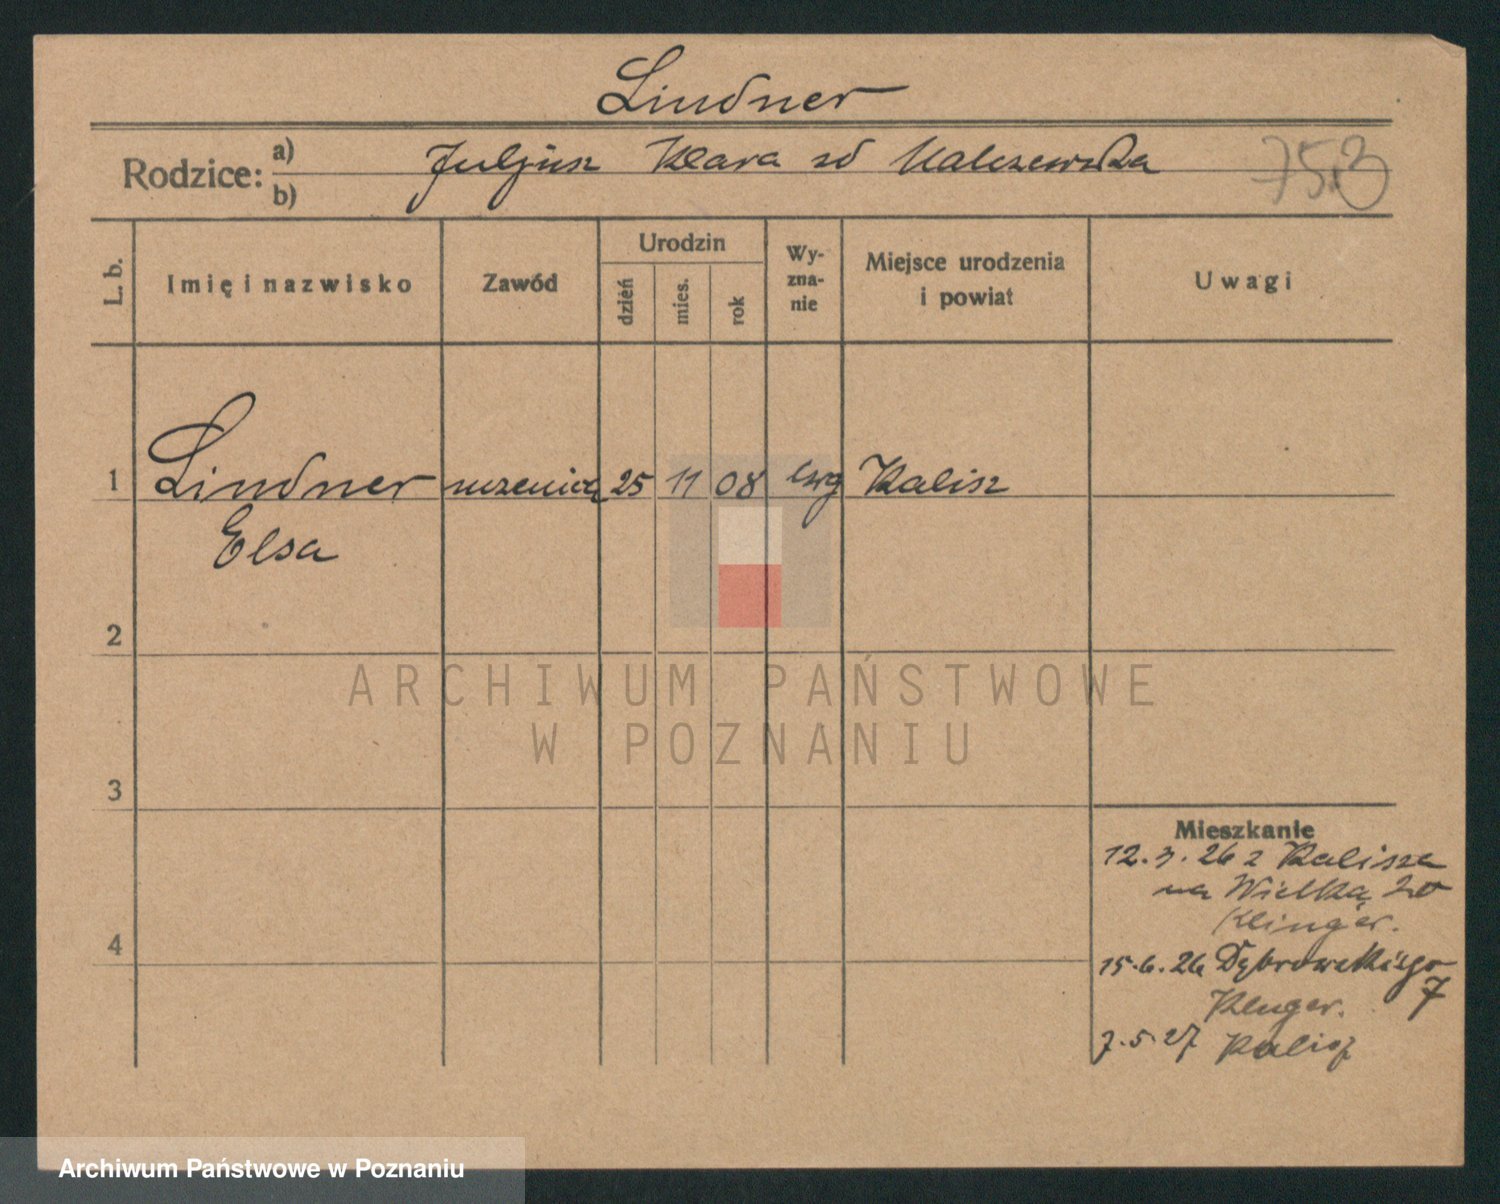 Lindner
Rodzice: a) b) Juljusz Klara zd Walczewska
753
L. b. Imię i nazwisko Zawód Urodzin dzień mies. rok Wyzna- nie Miejsce urodzenia i powiat Uwagi
1 Lindner uczenica 25 11 08 ewg Kalisz
Elsa
2
3
4
Mieszkanie
12.3.26 z Kalisza
na Wielką 20
Klinger.
15.6.26 Dąbrowskiego
7
Kluger.
7.5.27 Kalisz
ARCHIWUM PAŃSTWOWE
W POZNANIU
Archiwum Państwowe w Poznaniu